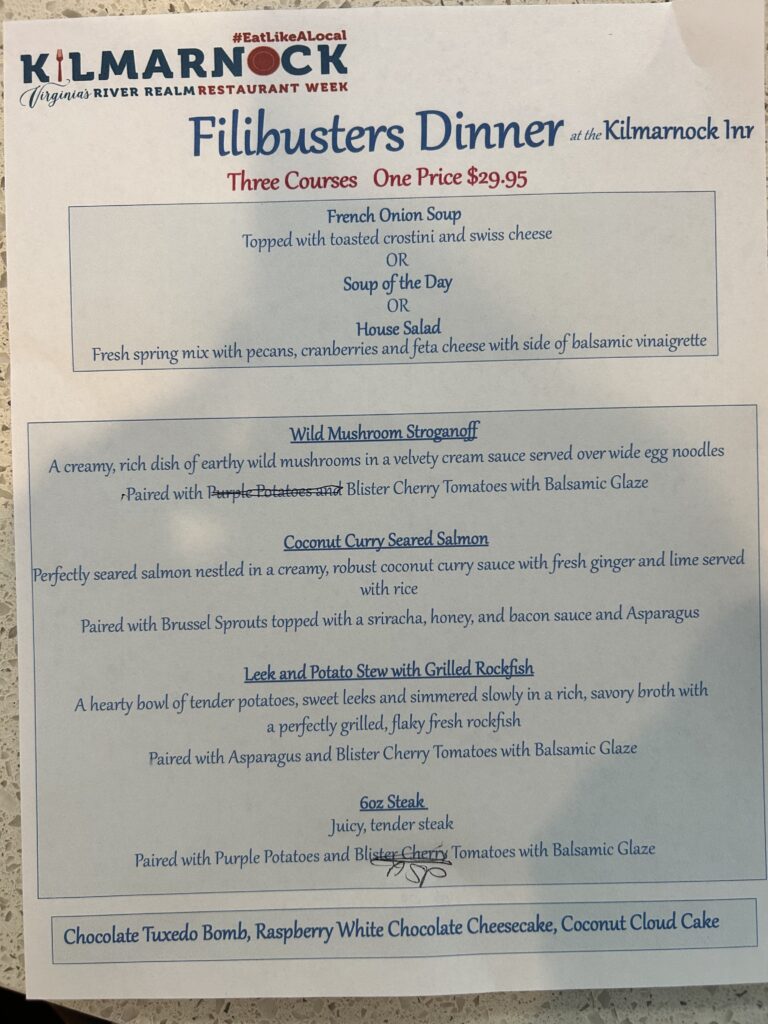 #EatLikeALocal
KILMARNOCK
Virginia's RIVER REALM RESTAURANT WEEK
Filibusters Dinner at the Kilmarnock Inn
Three Courses One Price $29.95
French Onion Soup
Topped with toasted crostini and swiss cheese
OR
Soup of the Day
OR
House Salad
Fresh spring mix with pecans, cranberries and feta cheese with side of balsamic vinaigrette
Wild Mushroom Stroganoff
A creamy, rich dish of earthy wild mushrooms in a velvety cream sauce served over wide egg noodles
Paired with Purple Potatoes and Blister Cherry Tomatoes with Balsamic Glaze
Coconut Curry Seared Salmon
Perfectly seared salmon nestled in a creamy, robust coconut curry sauce with fresh ginger and lime served
with rice
Paired with Brussel Sprouts topped with a sriracha, honey, and bacon sauce and Asparagus
Leek and Potato Stew with Grilled Rockfish
A hearty bowl of tender potatoes, sweet leeks and simmered slowly in a rich, savory broth with
a perfectly grilled, flaky fresh rockfish
Paired with Asparagus and Blister Cherry Tomatoes with Balsamic Glaze
6oz Steak
Juicy, tender steak
Paired with Purple Potatoes and Blister Cherry Tomatoes with Balsamic Glaze
ASP
Chocolate Tuxedo Bomb, Raspberry White Chocolate Cheesecake, Coconut Cloud Cake